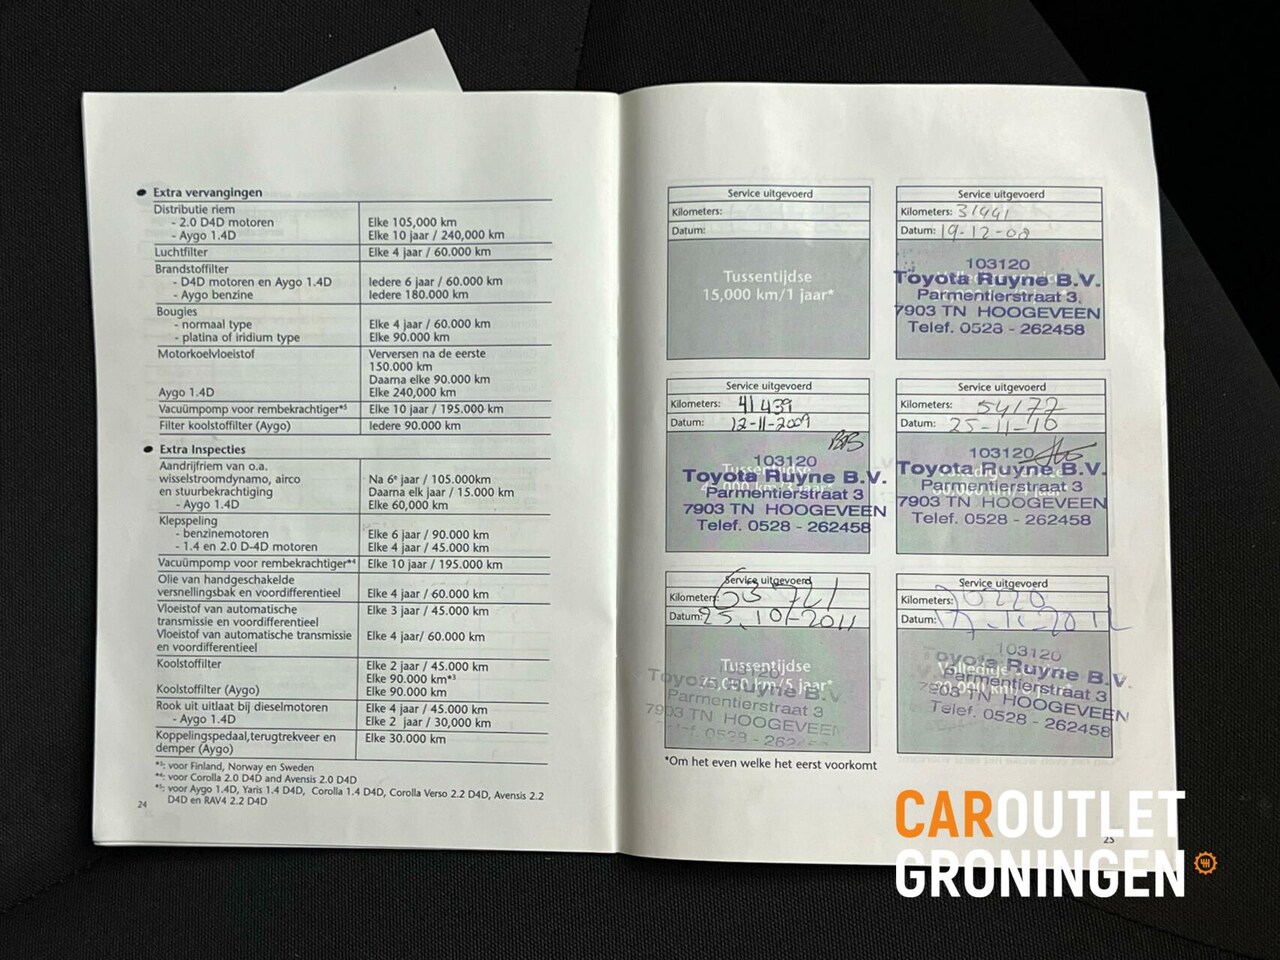 Extra vervangingen
Distributie riem
- 2.0 D4D motoren Elke 105,000 km
- Aygo 1.4D Elke 10 jaar / 240,000 km
Luchtfilter Elke 4 jaar / 60.000 km
Brandstoffilter
- D4D motoren en Aygo 1.4D Iedere 6 jaar / 60.000 km
- Aygo benzine Iedere 180.000 km
Bougies
- normaal type Elke 4 jaar / 60.000 km
- platina of iridium type Elke 90.000 km
Motorkoelvloeistof Verversen na de eerste
150.000 km
Daarna elke 90.000 km
Aygo 1.4D Elke 240,000 km
Vacuümpomp voor rembekrachtiger*5 Elke 10 jaar / 195.000 km
Filter koolstoffilter (Aygo) Iedere 90.000 km
Extra Inspecties
Aandrijfriem van o.a.
wisselstroomdynamo, airco Na 6e jaar / 105.000km
en stuurbekrachtiging Daarna elk jaar / 15.000 km
- Aygo 1.4D Elke 60,000 km
Klepspeling
- benzinemotoren Elke 6 jaar / 90.000 km
- 1.4 en 2.0 D-4D motoren Elke 4 jaar / 45.000 km
Vacuümpomp voor rembekrachtiger*4 Elke 10 jaar / 195.000 km
Olie van handgeschakelde
versnellingsbak en voordifferentieel Elke 4 jaar / 60.000 km
Vloeistof van automatische Elke 3 jaar / 45.000 km
transmissie en voordifferentieel
Vloeistof van automatische transmissie Elke 4 jaar/ 60.000 km
en voordifferentieel
Koolstoffilter Elke 2 jaar / 45.000 km
Elke 90.000 km*3
Koolstoffilter (Aygo) Elke 90.000 km
Rook uit uitlaat bij dieselmotoren Elke 4 jaar / 45.000 km
- Aygo 1.4D Elke 2 jaar / 30,000 km
Koppelingspedaal,terugtrekveer en Elke 30.000 km
demper (Aygo)
*3: voor Finland, Norway en Sweden
*4: voor Corolla 2.0 D4D and Avensis 2.0 D4D
*5: voor Aygo 1.4D, Yaris 1.4 D4D, Corolla 1.4 D4D, Corolla Verso 2.2 D4D, Avensis 2.2
D4D en RAV4 2.2 D4D
24
Service uitgevoerd
Kilometers:
Datum:
Tussentijdse
15,000 km/1 jaar*
Service uitgevoerd
Kilometers: 31441
Datum: 19-12-08
103120
Toyota Ruyne B.V.
Parmentierstraat 3
7903 TN HOOGEVEEN
Telef. 0528 - 262458
Service uitgevoerd
Kilometers: 41439
Datum: 12-11-2009
103120
Tussentijdse
Toyota Ruyne B.V.
Parmentierstraat 3
7903 TN HOOGEVEEN
Telef. 0528 - 262458
Service uitgevoerd
Kilometers: 54177
Datum: 25-11-10
103120
Toyota Ruyne B.V.
Parmentierstraat 3
7903 TN HOOGEVEEN
Telef. 0528 - 262458
Service uitgevoerd
Kilometers: 63721
Datum: 25.10/-2011
Tussentijdse
75,000 km/5 jaar*
103120
Toyota Ruyne B.V.
Parmentierstraat 3
7903 TN HOOGEVEEN
Service uitgevoerd
Kilometers: 70220
Datum:
103120
Toyota Ruyne B.V.
Volledige
Parmentierstraat 3
7903 TN HOOGEVEEN
Telef. 0528 - 262458
*Om het even welke het eerst voorkomt
25
CAROUTLET
GRONINGEN